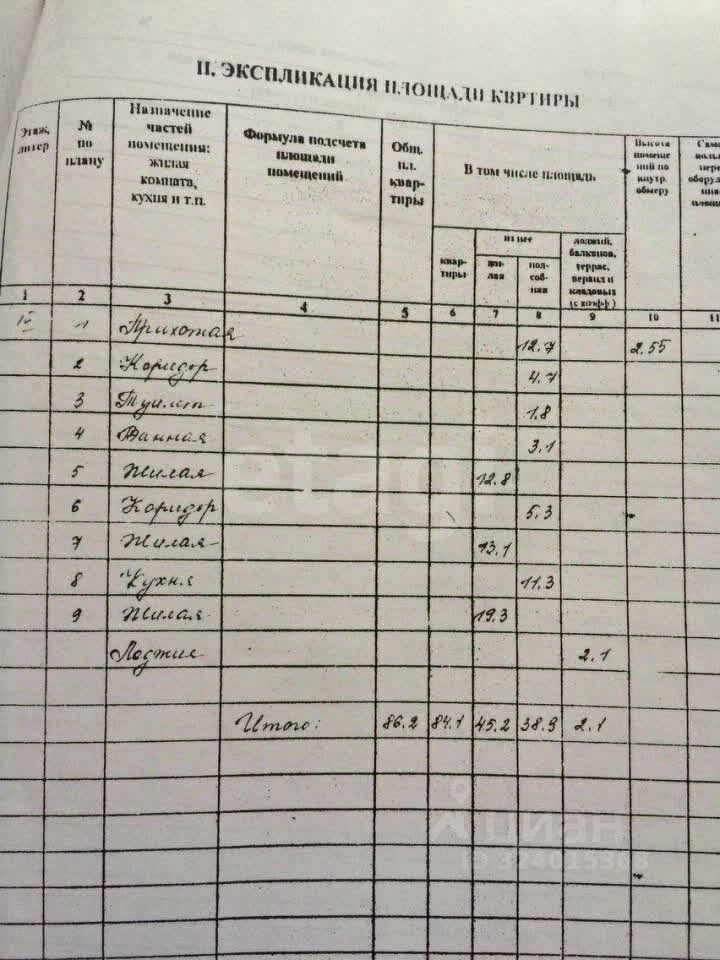 II. ЭКСПЛИКАЦИЯ ПЛОЩАДИ КВРТИРЫ
Этаж, литер
№ по плану
Назначение частей помещения: жилая комната, кухня и т.п.
Формула подсчета площади помещений
Общ. пл. квар- тиры
В том числе площадь
Высота помеще ний по внутр. обмеру
квар- тиры
из нее
жи- лая
под- соб- ная
лоджий, балконов, террас, веранд и кладовых (с коэфф)
1 2 3 4 5 6 7 8 9 10 11
1 Прихожая 12.7 2.55
2 Коридор 4.7
3 Туалет 1.8
4 Ванная 3.1
5 Жилая 12.8
6 Коридор 5.3
7 Жилая 13.1
8 Кухня 11.3
9 Жилая 19.3
Лоджия 2.1
Итого: 86.2 84.1 45.2 38.9 2.1
etagi
циан
ID 324015368